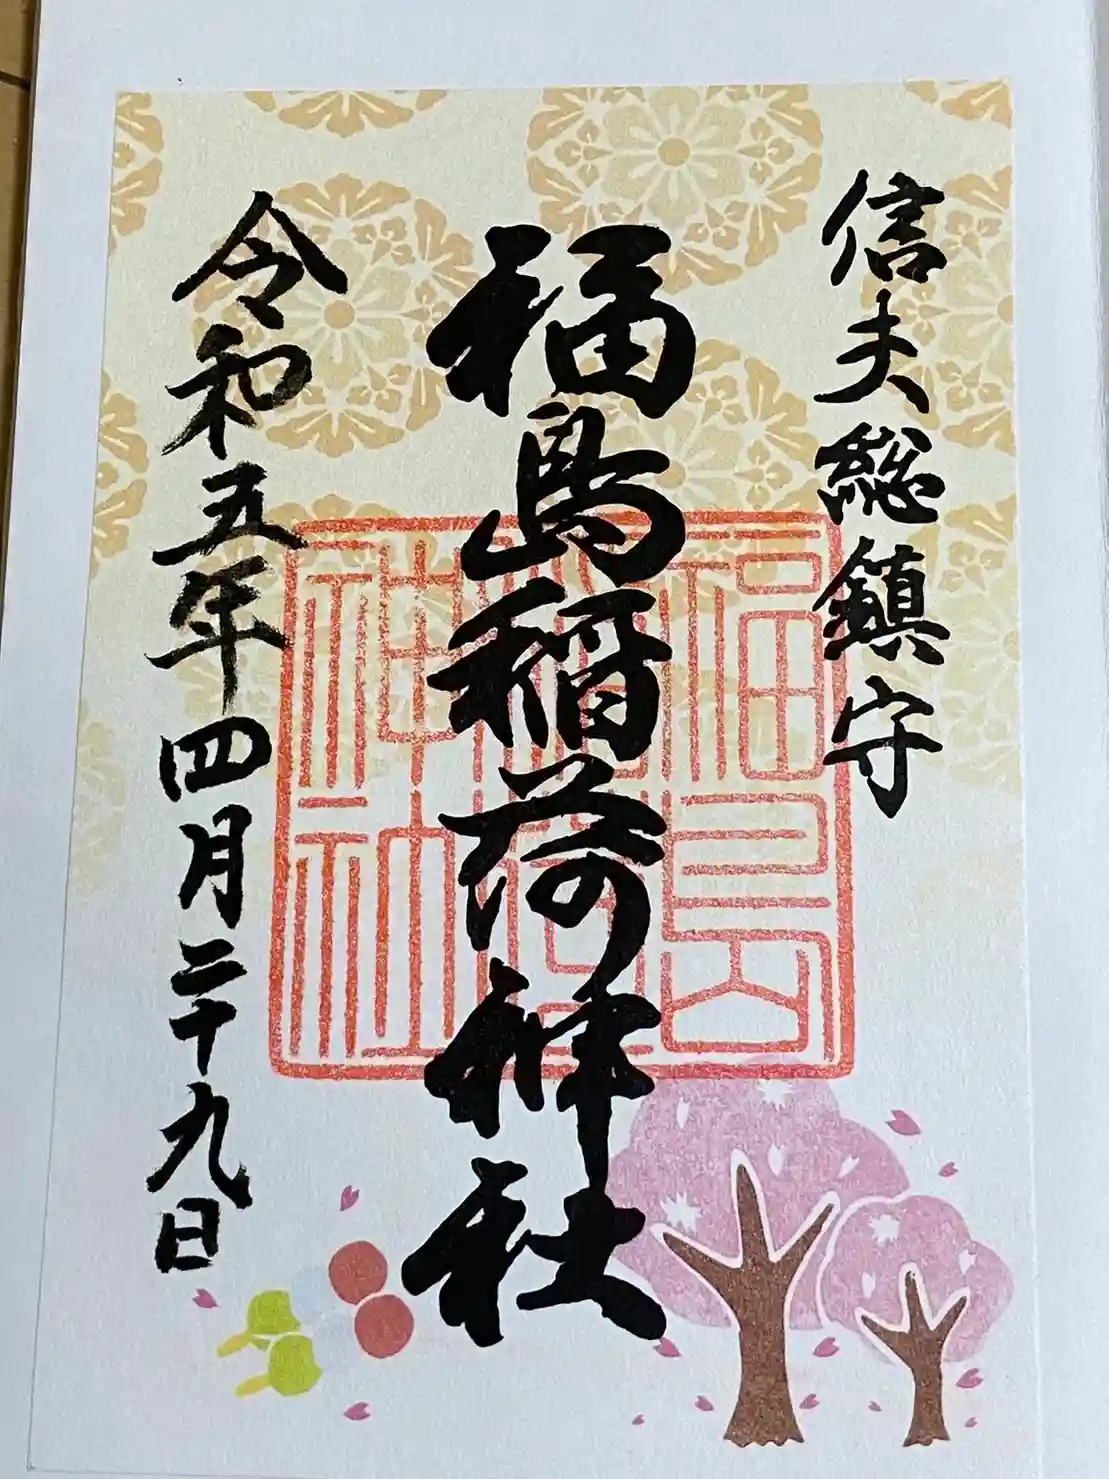 信夫総鎮守
福島稲荷神社
福島
稲荷
神社
令和五年四月二十九日